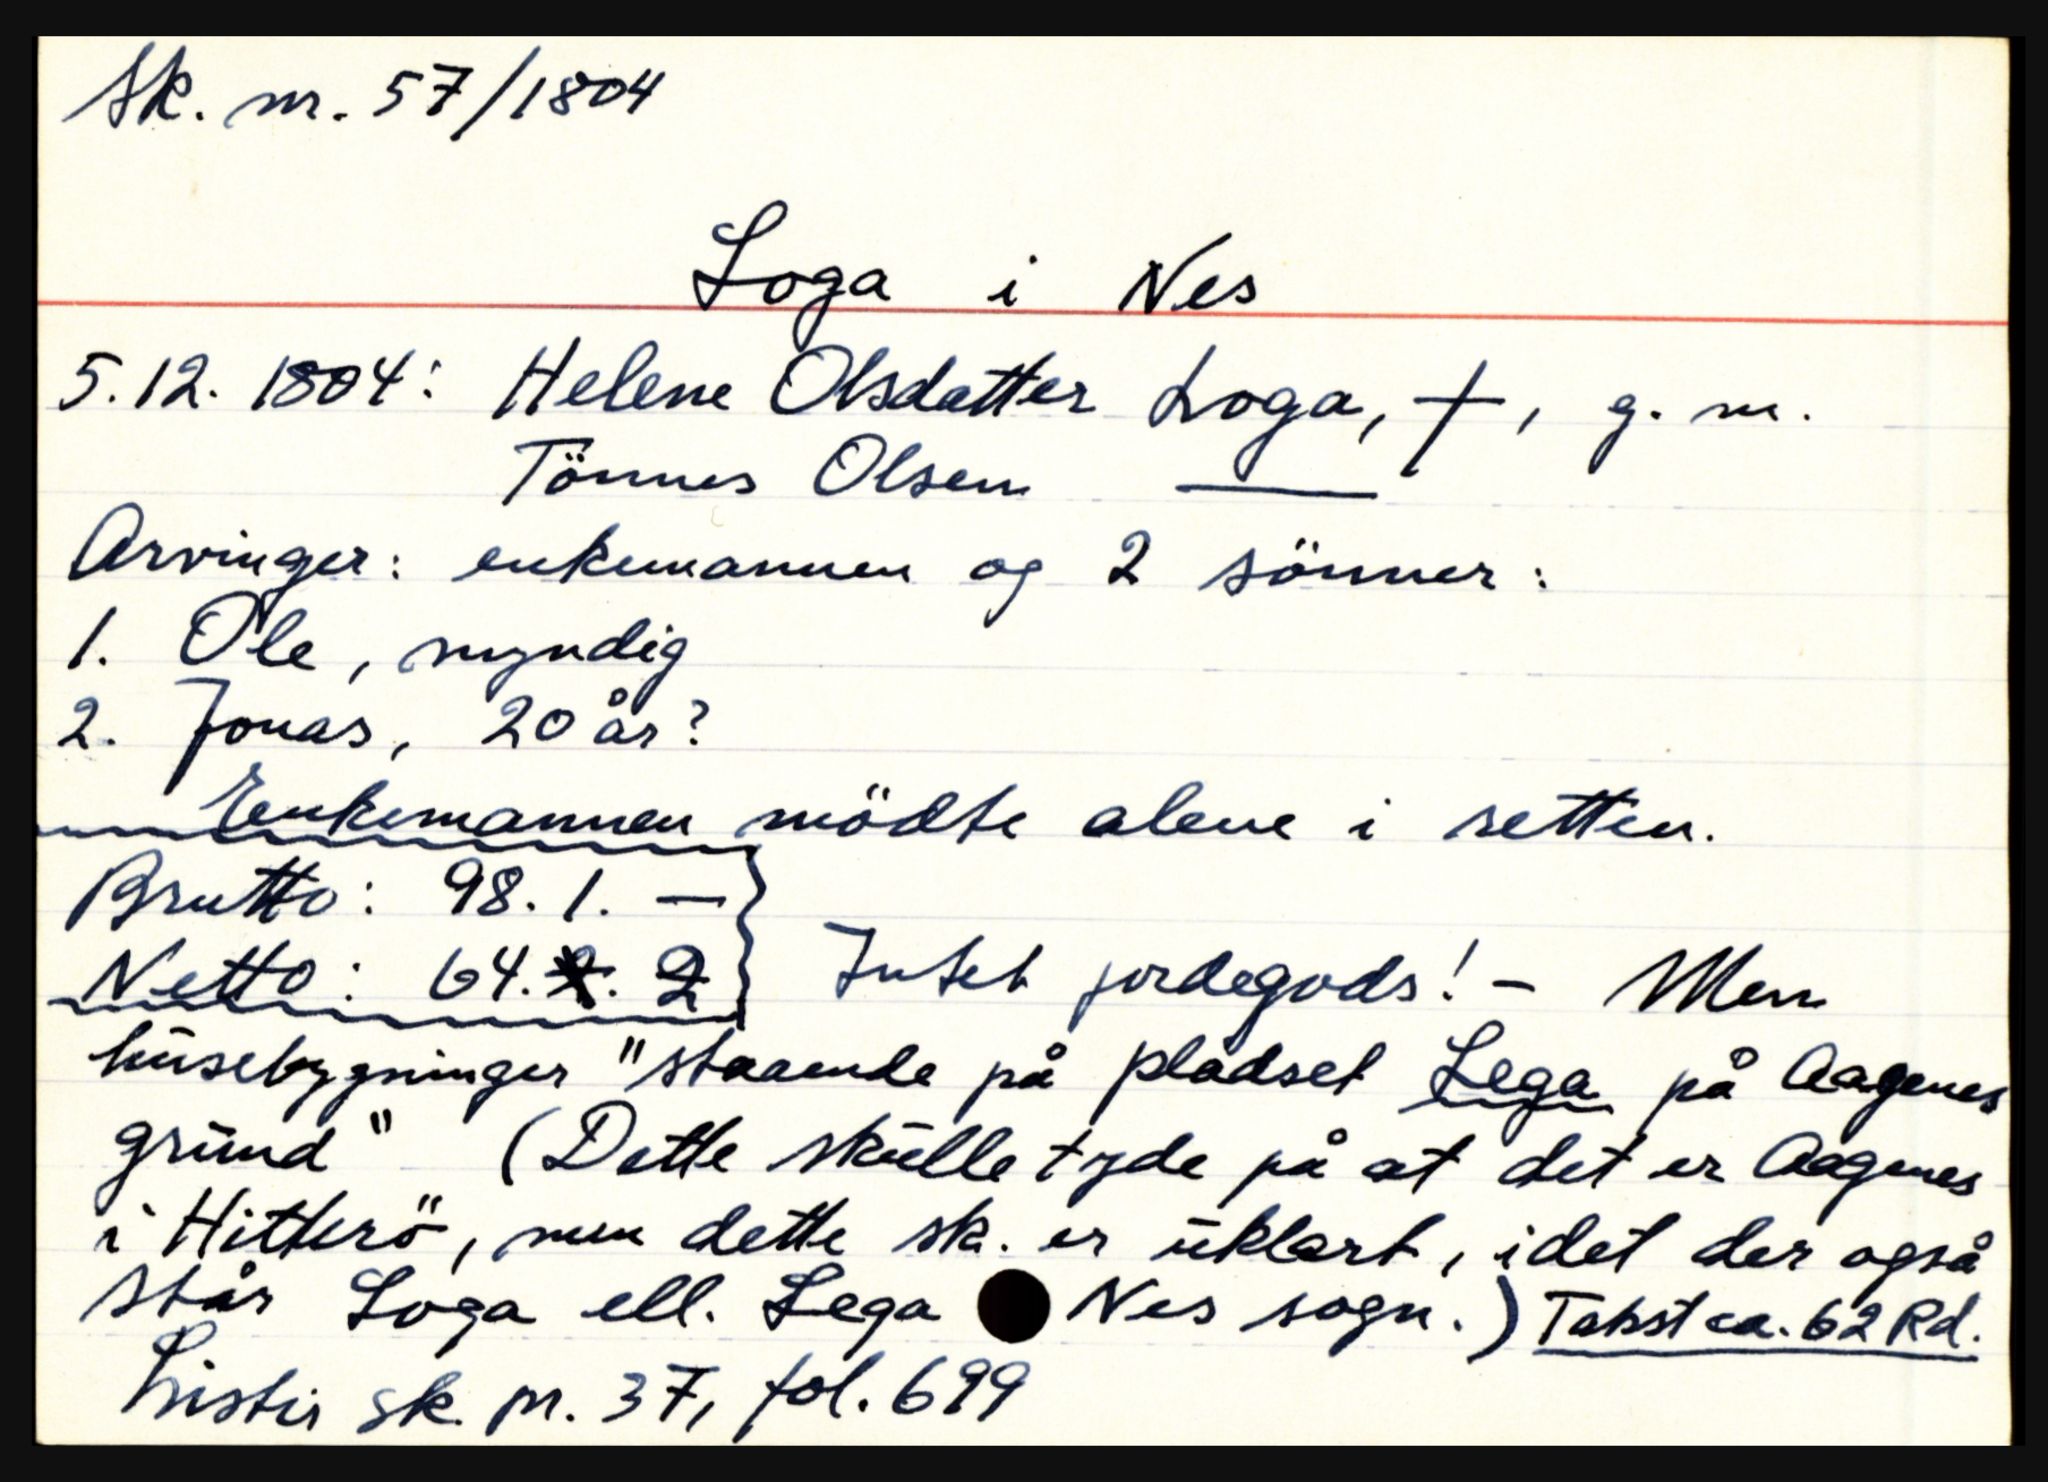 Sk. nr. 57/1804
Loga i Nes
5.12. 1804: Helene Olsdatter Loga, †, g. m.
Tönnes Olsen ——
Arvinger: enkemannen og 2 sönner:
1. Ole, myndig
2. Jonas, 20 år?
Enkemannen mödte alene i retten.
Brutto: 98. 1. —
Netto: 64. . 2 Intet jordegods! - Men
husebygninger "staaende på pladset Lega på Aagenes
grund" (Dette skulle tyde på at det er Aagenes
i Hitterö, men dette sk. er uklart, idet der også
står Loga ell. Lega Nes sogn.) Takst ca. 62 Rd.
Lister sk. pr. 37, fol. 699